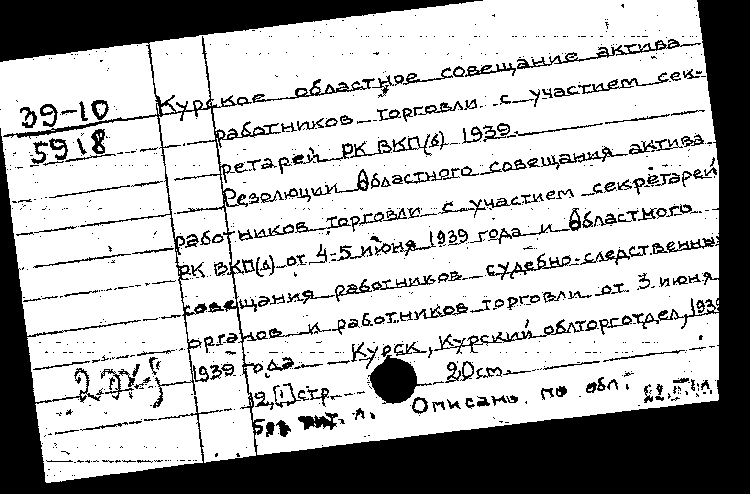 39-10
5918
Курское областное совещание актива
работников торговли с участием сек-
ретарей РК ВКП(б) 1939.
Резолюции Областного совещания актива
работников торговли с участием секретарей
РК ВКП(б) от 4-5 июня 1939 года и Областного
совещания работников судебно-следственных
органов и работников торговли от 3 июня
1939 года. Курск, Курский облторготдел, 1939
12,[1]стр. 20см.
2экз
экз. л. Описано по обл.